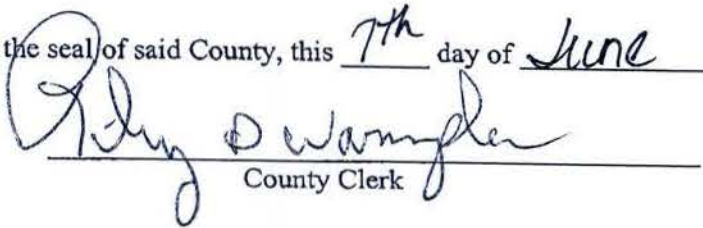 the seal of said County, this 7th day of June
D Wampler
County Clerk